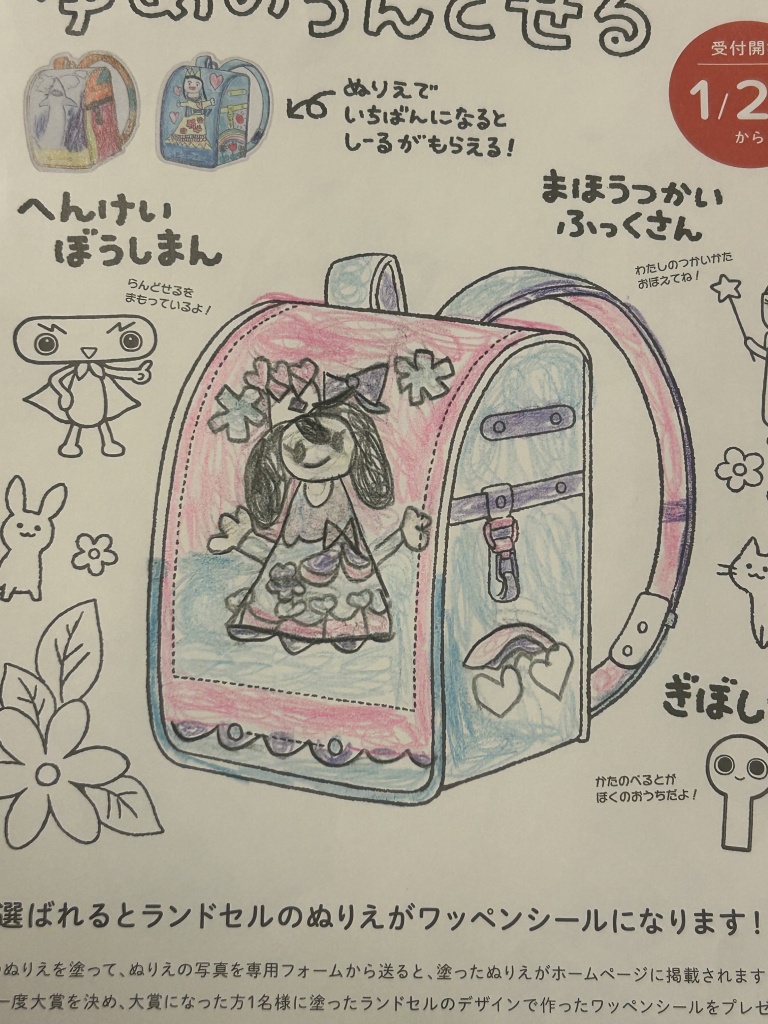 ゆめのらんどせる
受付開
1/2
から
ぬりえで
いちばんになると
しーるがもらえる!
へんけい
ぼうしまん
らんどせるを
まもっているよ!
まほうつかい
ふっくさん
わたしのつかいかた
おぼえてね!
ぎぼし
かたのべるとが
ぼくのおうちだよ!
選ばれるとランドセルのぬりえがワッペンシールになります!
ぬりえを塗って、ぬりえの写真を専用フォームから送ると、塗ったぬりえがホームページに掲載されます
一度大賞を決め、大賞になった方1名様に塗ったランドセルのデザインで作ったワッペンシールをプレゼ